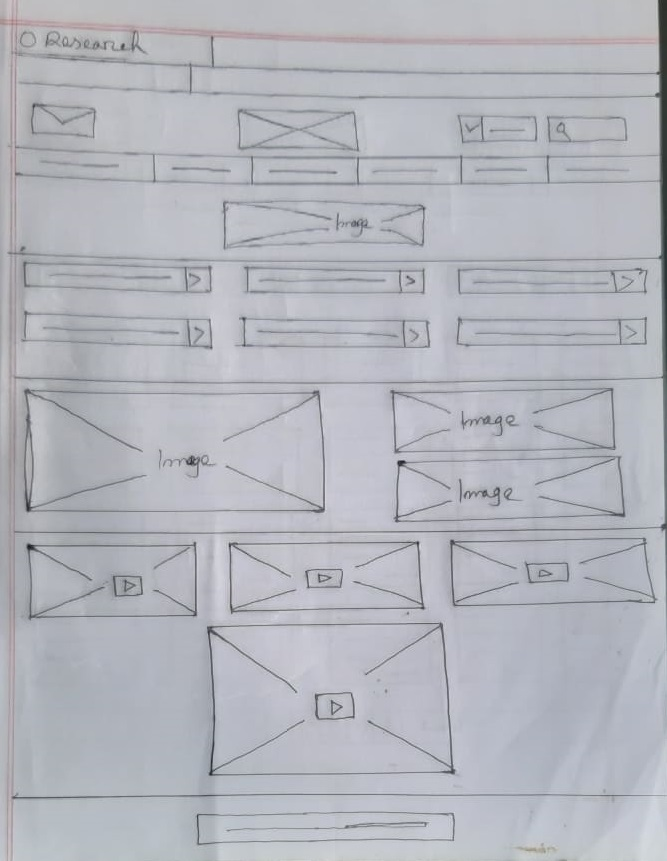 O Research
Image
Image
Image
Image